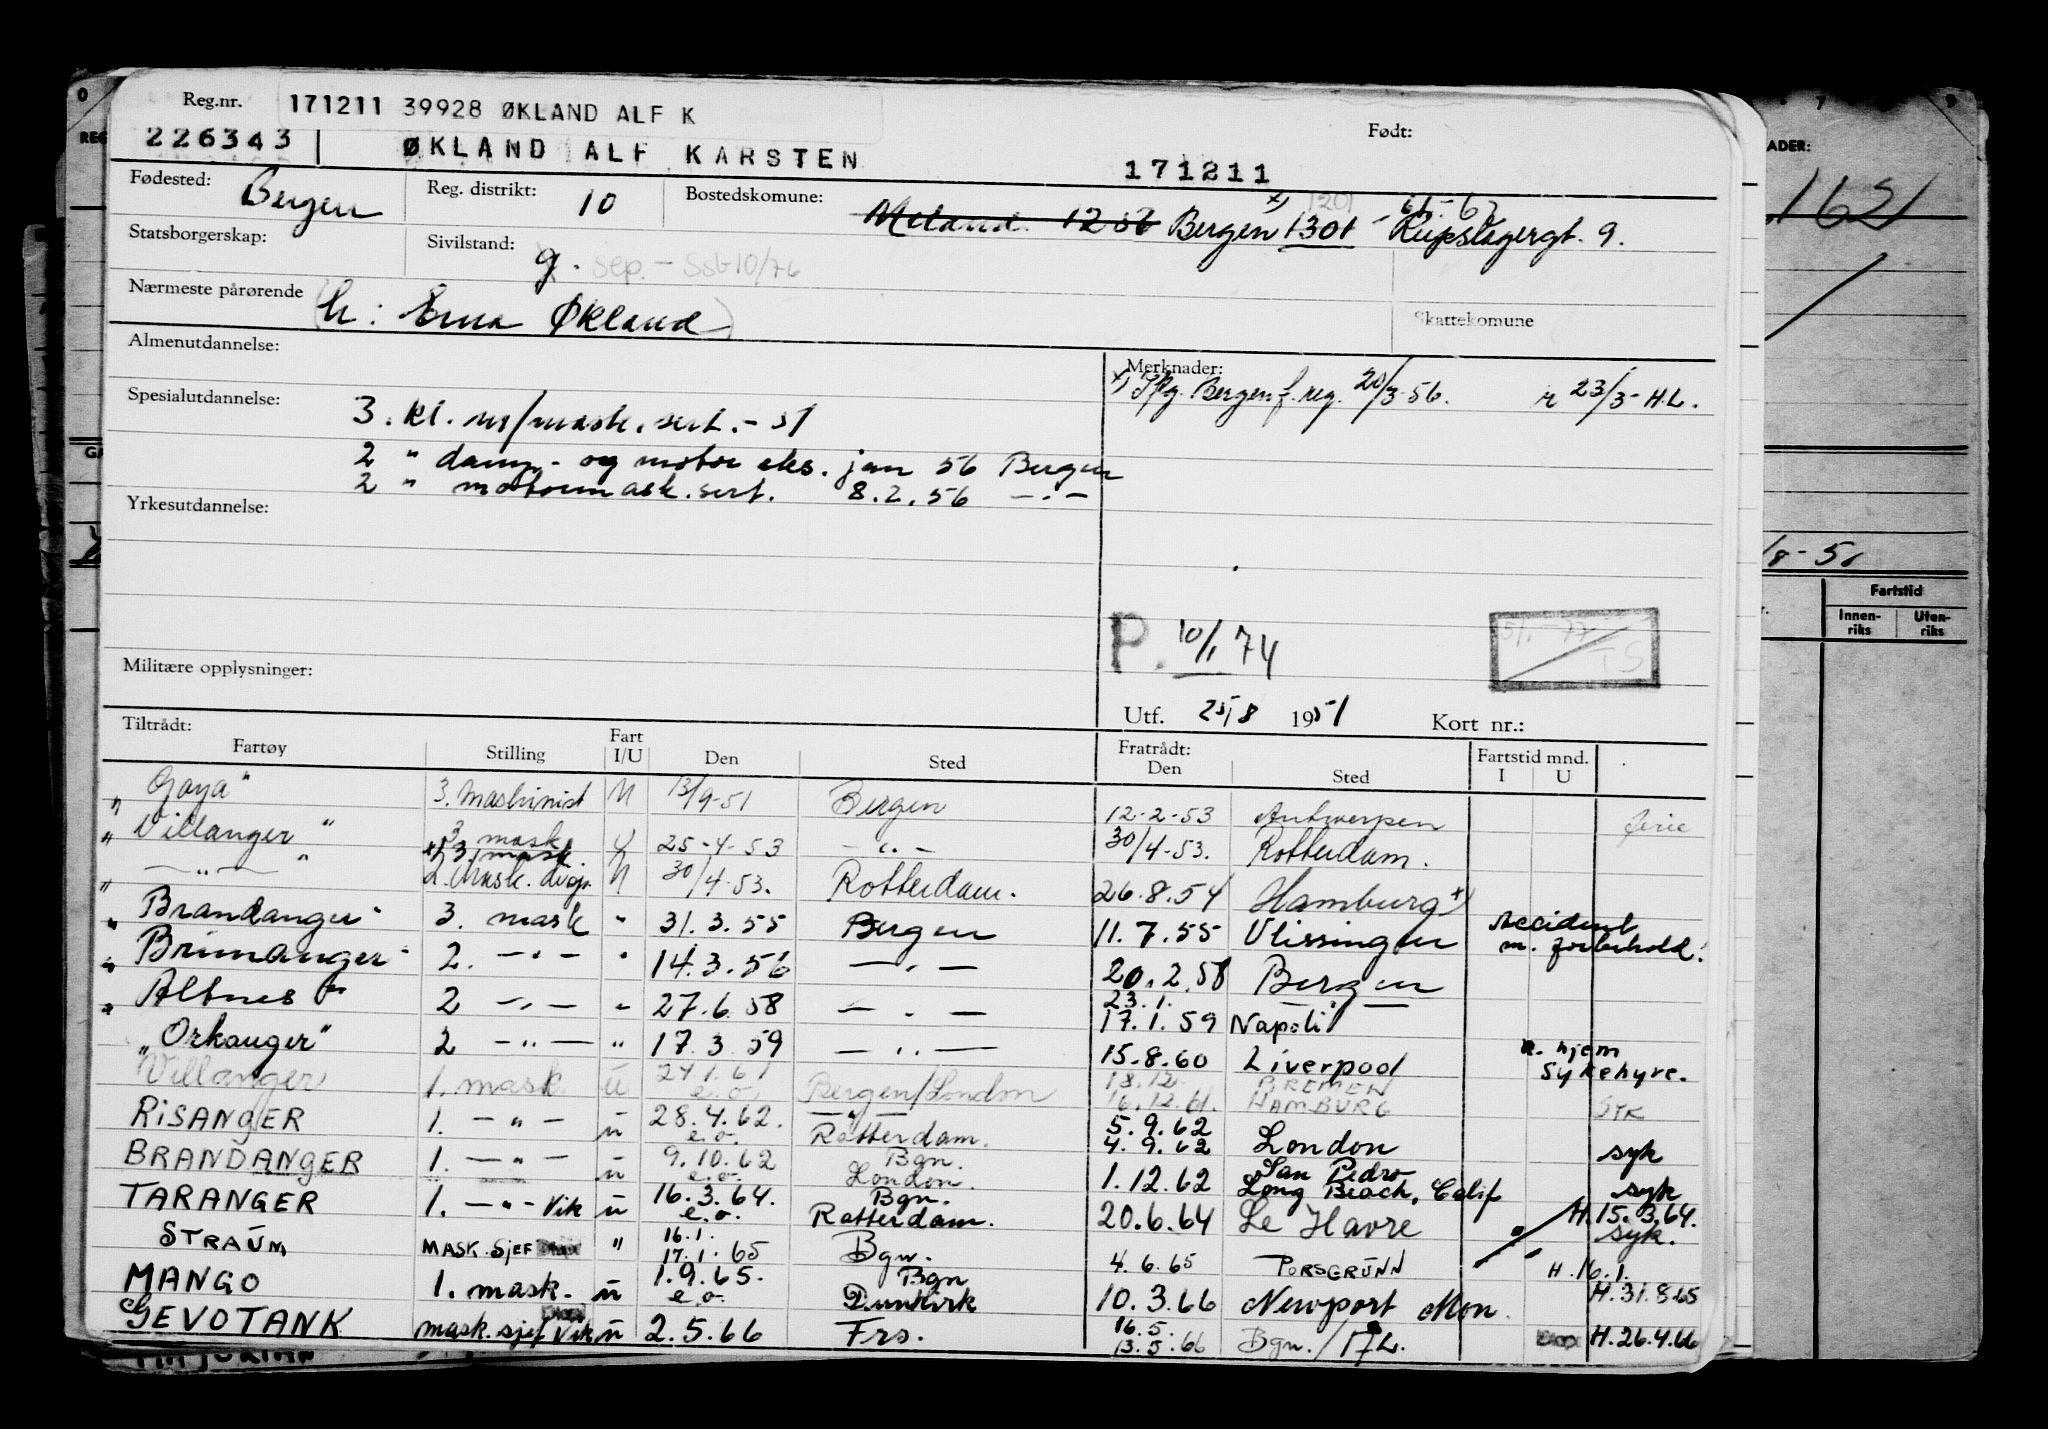 Reg.nr. 171211 39928 ØKLAND ALF K
226343 ØKLAND ALF KARSTEN Født: 171211
Fødested: Bergen Reg. distrikt: 10 Bostedskomune: Meland Bergen x) 1301 - Repslagergt. 9.
Statsborgerskap: Sivilstand: g. sep. - SSB 10/76
Nærmeste pårørende (h: Erna Økland) Skattekomune
Almenutdannelse: Merknader:
x) Ifg. Bergen f. reg. 20/3-56. r 23/3- H.L.
Spesialutdannelse: 3. kl. m/mask. sert. - 51
2 " damp- og motor eks. jan 56 Bergen
2 " motormask.sert. 8.2.56 - " -
Yrkesutdannelse:
P. 10/1 74
Militære opplysninger:
Utf. 25/8 1951 Kort nr.:
Tiltrådt: Fratrådt:
Fartøy Stilling Fart I/U Den Sted Den Sted Fartstid mnd. I U
"Gaya" 3. maskinist U 13/9-51 Bergen 12-2-53 Antwerpen ferie
"Villanger" 3 mask. U 25-4-53 - " - 30/4-53. Rotterdam.
" - " - " x) 3. mask. 2. mask. U 30/4-53. Rotterdam. 26.8.54 Hamburg x)
"Brandanger" 3. mask " 31.3.55 Bergen 11.7.55 Vlissingen Accident m. forbehold!
"Brimanger" 2. - " - " 14.3.56 - " - 20.2.58 Bergen
"Altnes" 2 - " - " 27.6.58 - " - 23.1. - " - 17.1.59 Napoli
"Orkanger" 2 - " - " 17.3.59 - " - 15.8.60 Liverpool hjem sykehyre.
Villanger 1. mask U 27.1.61 e.o. Bergen/London 18.12. BREMEN 16.12.61. HAMBURG SYK
RISANGER 1. - " - u 28.4.62. e.o. - " - Rotterdam. 5.9.62 4.9.62 London syk
BRANDANGER 1. - " - u 9.10.62 e.o. Bgn. London. 1.12.62 San Pedro Long Beach, Calif syk
TARANGER 1. - " - Vik u 16.3.64. e.o. Bgn. Rotterdam. 20.6.64 Le Havre H.15.3.64. syk.
STRAUM MASK.SJEF " 16.1. 17.1.65 Bgn. 4.6.65 PORSGRUNN H.16.1.
MANGO 1. mask. u 1.9.65. e.o. Bgn Dunkirk 10.3.66 Newport Mon. H.31.8.65
GEVOTANK mask.sjef Vik u 2.5.66 Frs. 16.5. 13.5.66 Bgn. H.26.4.66
ADER:
1621
/8-51
Fartstid
Innen-riks Uten-riks